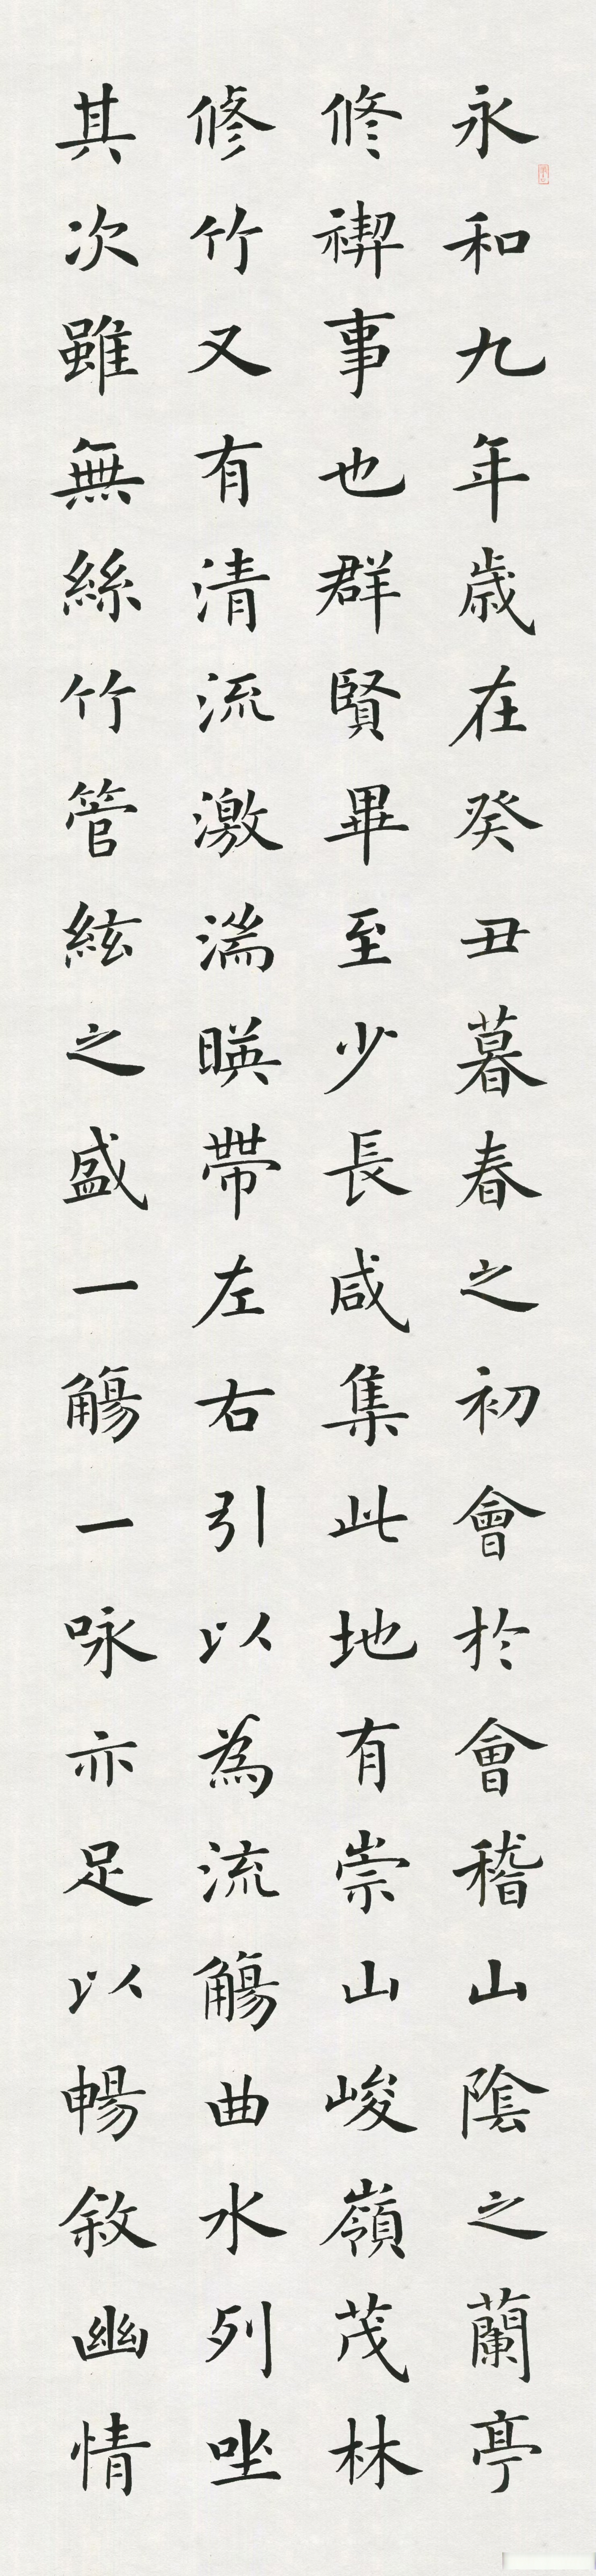 永和九年歲在癸丑暮春之初會於會稽山陰之蘭亭
修禊事也群賢畢至少長咸集此地有崇山峻嶺茂林
修竹又有清流激湍暎帶左右引以為流觴曲水列坐
其次雖無絲竹管絃之盛一觴一咏亦足以暢敘幽情